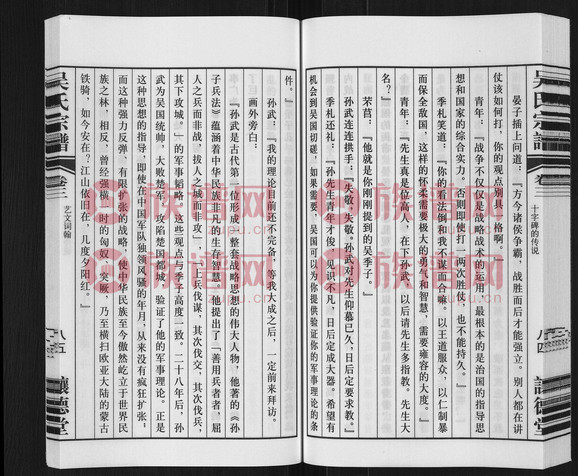 吴氏宗谱
卷三
十字碑的传说
八四
让德堂
晏子插上问道：『方今诸侯争霸，战胜而后才能强立。别人都在讲
仗该如何打，你的观点别具一格啊。』
青年：『战争不仅仅是战略战术的运用，最根本的是治国的指导思
想和国家的综合实力。否则即使打一两次胜仗，也不能持久。』
季札笑道：『你的看法倒和我不谋而合嘛。以王道服众，以仁制暴
而保全敌国，这样的怀柔需要极大的勇气和智慧，需要雍容的大度。』
青年：『先生真是位高人，在下孙武，以后请先生多指教。先生大
名？』
荣莒：『他就是你刚刚提到的吴季子。』
孙武连连拱手：『失敬，失敬。孙武对先生仰慕已久，日后定要求教。』
季札还礼：『孙先生青年才俊，见识不凡，日后定成大器。希望有
机会到吴国切磋，如果需要，吴国可以为你提供验证你的军事理论的条
件。』
孙武：『我的理论目前还不完备，等我大成之后，一定前来拜访。』
画外旁白：
『孙武是古代第一位形成一整套战略思想的伟大人物，他著的《孙
子兵法》蕴涵着中华民族非凡的生存智慧。他提出了「善用兵者者，屈
人之兵而非战，拔人之城而非攻」、「上兵伐谋，其次伐交，其次伐兵，
其下攻城。」的军事韬略。这些观点与季子高度一致。二十八年后，孙
武为吴国统帅，大败楚军，攻陷楚国都城，验证了他的军事理论。正是
这种思想的指导，即使在中国军队独领风骚的年月，从来没有疯狂扩张；
而这种强力反弹、有限扩张的战略，使中华民族至今傲然屹立于世界民
族之林。相反，曾经强横一时的匈奴、突厥，乃至横扫欧亚大陆的蒙古
铁骑，如今安在？江山依旧在，几度夕阳红。』
吴氏宗谱
卷三
艺文词翰
八五
让德堂